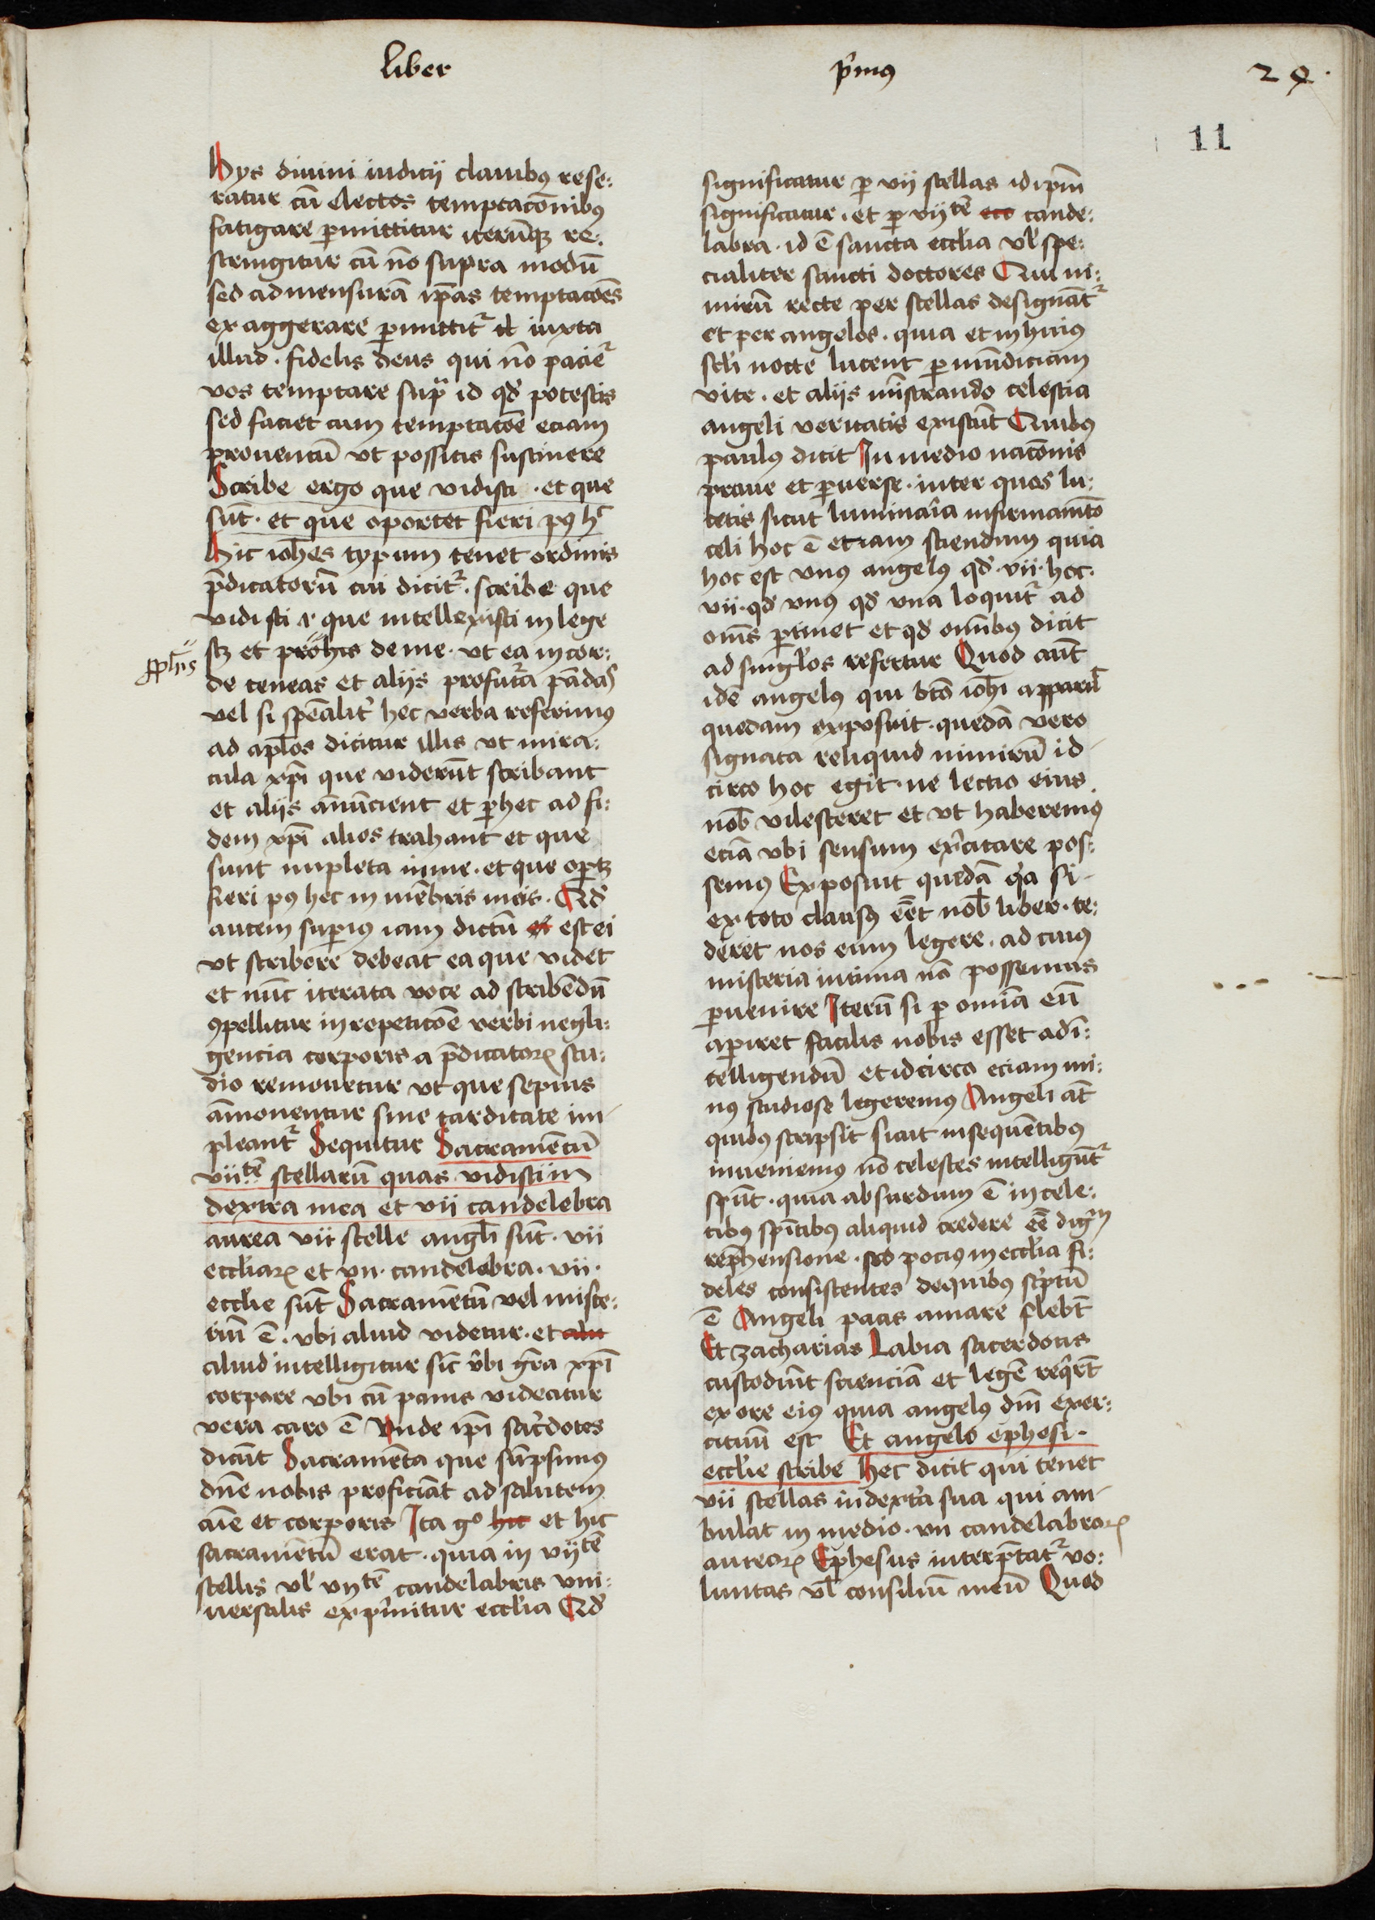 liber
p̄mus
24.
11
Hys diuini iudicij clauibus rese:
ratur cū electos temptacōnibus
fatigare ꝑmittitur iterūqꝫ re:
stringitur cū nō supra modū
sed ad mensurā ip̄as temptacōes
exaggerare ꝑmittit᷑ iuxta
illud · fidelis deus qui nō paciet᷑
vos temptare supra id qd̛ potestis
sed faciet cum temptacōe eciam
prouentū vt possitis sustinere
Scribe ergo que vidisti · et que
sūt · et que oportet fieri pꝰ hͨ
Hic ioh̄es typum tenet ordinis
p̄dicatorū cui dicit᷑ · scribe que
vidisti que intellexisti in lege
scꝫ et prohis de me · vt ea in cor:
ꝓph̄is
de teneas et alijs profutura
vel si spēalit̛ hec verba referimꝰ
ad apl̄os dicitur illis vt mira:
cula xp̄i que viderūt scribant
et alijs annūcient et ꝑ hec ad fi:
dem xp̄i alios trahant et que
sunt impleta in me · et que oportꝫ
fieri pꝰ hec in mēbris meis · Qd̛
autem suꝑius iam dictū est ei
vt scribere debeat ea que videt
et nūc iterata voce ad scribēdū
ꝯpellitur in repeticōe verbi negli:
gencia corporis a p̄dicatorꝫ stu:
dio remouetur vt que sepius
āmonentur sine tarditate im
pleant᷑ Sequitur Sacramētū
vijtē stellarū quas vidisti in
dextra mea et vii candelebra
aurea vii stelle angl̄i sūt · vii
eccl̄iarꝫ et vii · candelabra · vii ·
ecclīe sūt Sacramētū vel miste:
riū ē · vbi aliud videtur · et aliu
aliud intelligitur sic̄ vbi gr̄a xp̄i
corpore vbi cū panis videatur
vera caro ē Vnde ip̄i sac̛dotes
dicūt Sacramēta que sūpsimus
dn̄e nobis proficiāt ad salutem
aīe et corporis Ita gͦ hic et hic
sacramētū erat · quia in vijtē
stellis vl̛ vijtē candelabris vni:
uersalis exp̄mitur eccl̄ia Qd̛
significatur ꝑ vij stellas id ip̄m
significatur · et ꝑ vijtē ecc cande:
labra · id ē sancta eccl̄ia vl̛ spe:
cialiter sancti doctores Qui ni:
mirū recte per stellas designāt᷑
et per angelos · quia et in huius
scl̄i nocte lucent ꝑ mūdiciam
vite · et alijs mīstrando celestia
angeli veritatis existūt Quibus
paulus dicit In medio nacōnis
praue et ꝑuerse · inter quos lu:
cetis sicut luminaria in firmamēto
celi hoc ē etiam sciendum quia
hoc est vnus angelus qd̛ · vii · hoc ·
vii · qd̛ vnus qd̛ vna loquit᷑ ad
om̄s ꝑtinet et qd̛ omībus dicit
ad sing̛los refertur Quod aūt
idē angelus qui bt̄o ioh̄i apparuit
quedam exposuit · quedā vero
signata reliquid nimirū id
circo hoc egit · ne lectio eius
nob̄ vilesceret et vt haberemus
eciā vbi sensum ex̛citare pos:
semus Exposuit quedā q̛a si
ex toto clausus eēt nob̄ liber · te:
deret nos eum legere · ad cuius
misteria intima nō possemus
ꝑuenire Iterū si ꝑ omīa eū
aꝑiret facilis nobis esset ad ī:
telligendū et idcirco eciam mi:
nus studiose legeremus Angeli aūt
quibus scripsit sicut in sequētibus
inueniemus nō celestes intelligūt᷑
spūs · quia absurdum ē in cele:
tibus spītibus aliquid credere eēē dignū
rep̄hensione · sed pocius in eccl̄ia fi:
deles consistentes de quibus sc̛ptū
ē Angeli pacis amare flebūt
Et zacharias Labia sacerdotis
custodiūt scienciā et legē req̛rūt
ex ore eius quia angelus dn̄i exer:
cituū est Et angelo ephesi ·
eccl̄ie scribe Hec dicit qui tenet
vii stellas in dextra sua qui am
bulat in medio · vii candelabrorꝫ
aureorꝫ Ephesus interp̄tat᷑ vo:
luntas vl̛ consiliū meū Quod